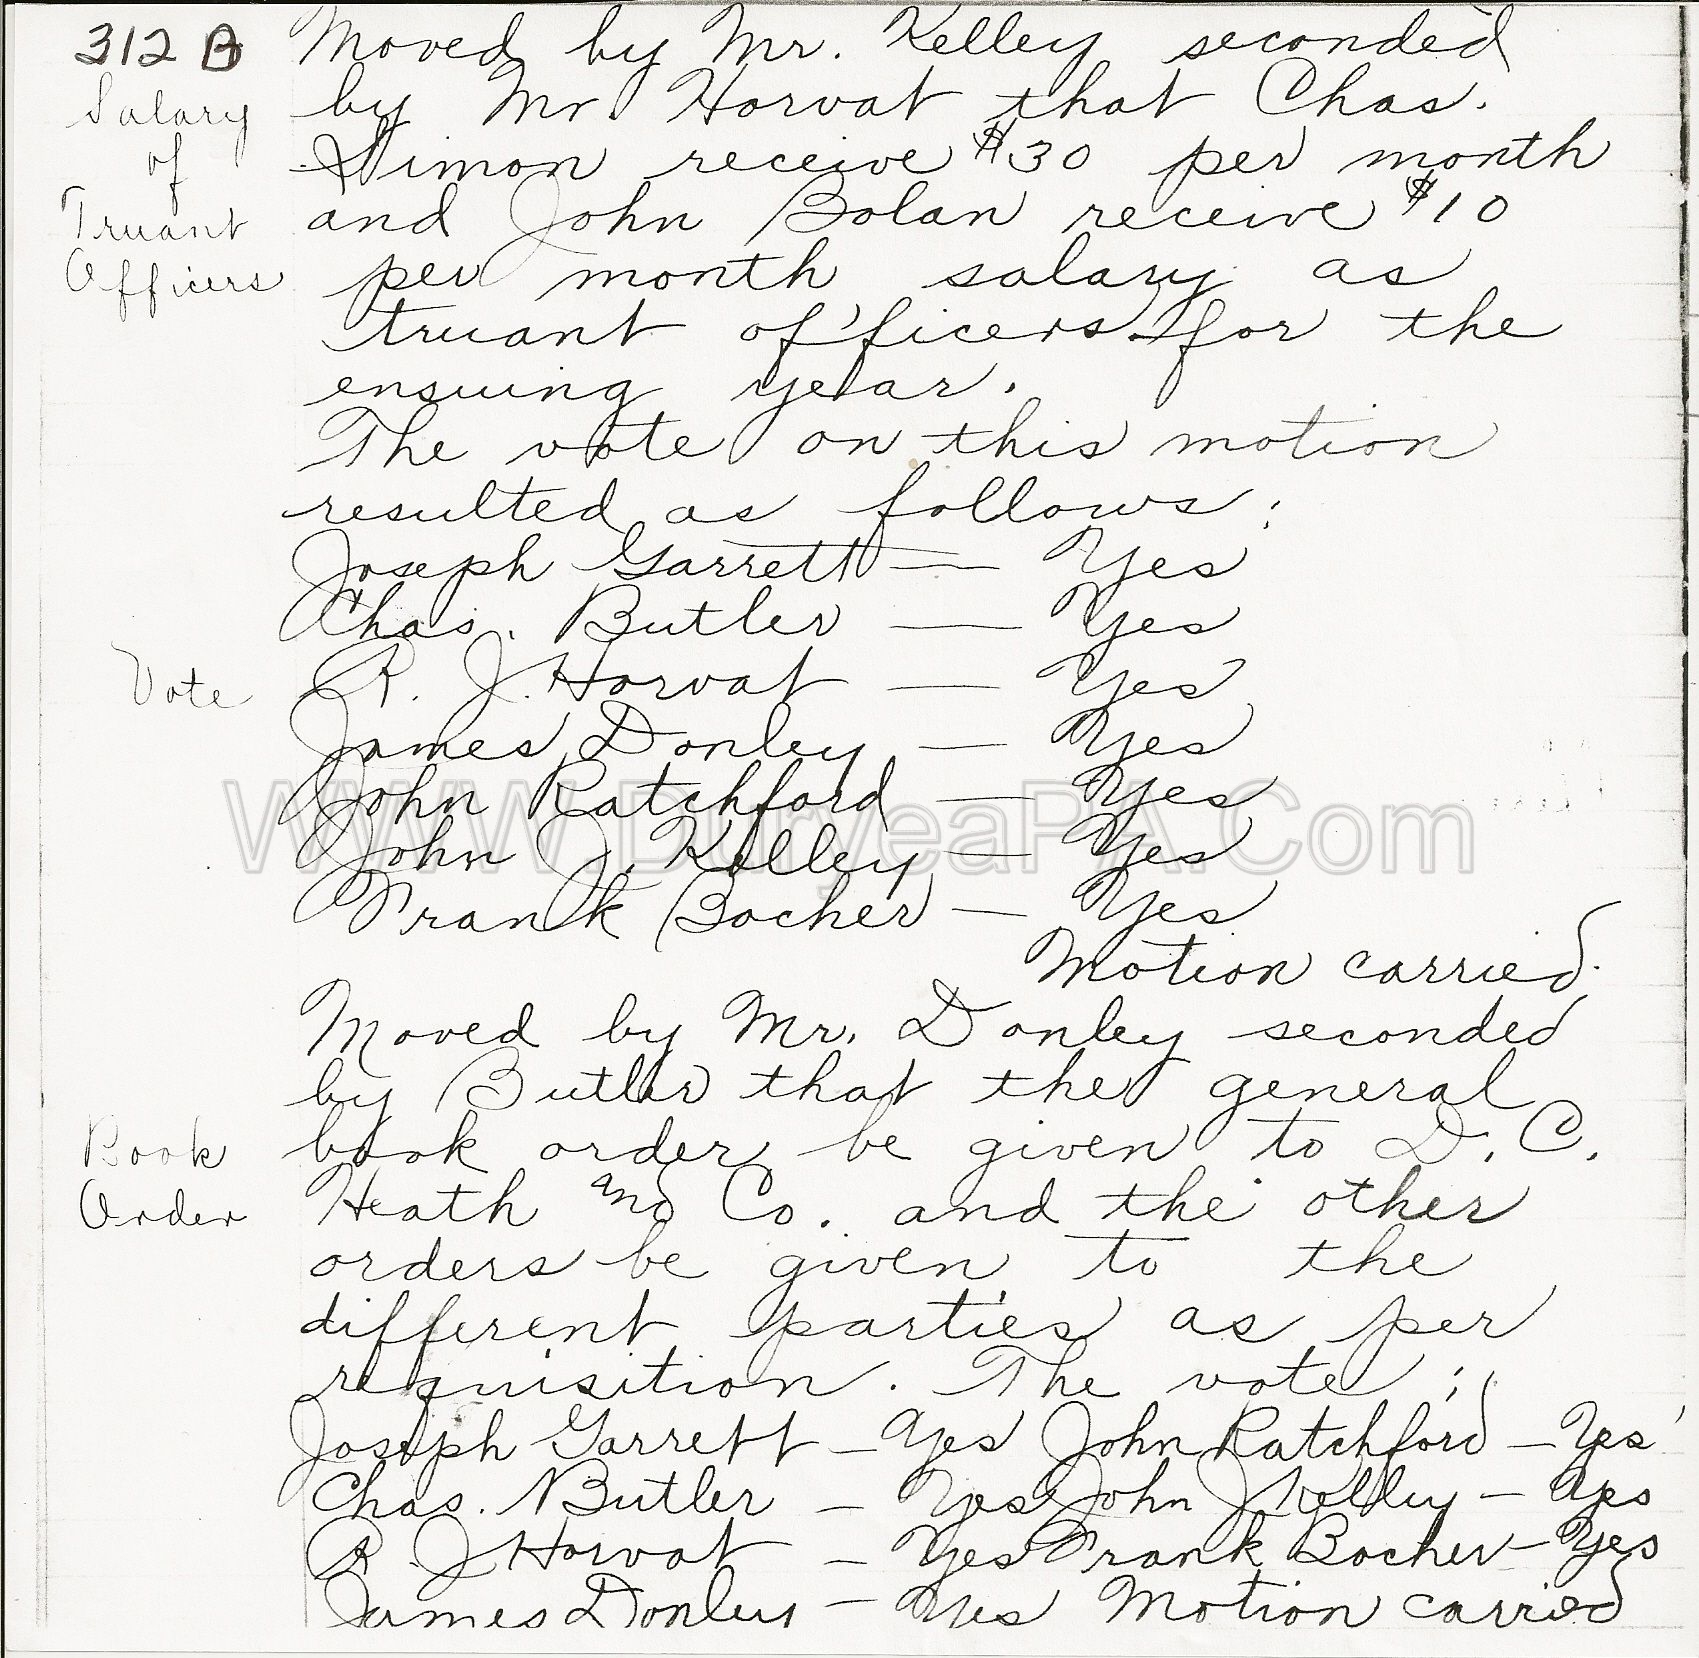 312 B Moved by Mr. Kelley seconded
Salary by Mr. Horvat that Chas.
of Simon receive $30 per month
Truant and John Bolan receive $10
Officers per month salary as
truant officers for the
ensuing year.
The vote on this motion
resulted as follows:
Joseph Garrett — Yes
Chas. Butler — Yes
Vote R. J. Horvat — Yes
James Donley — Yes
John Ratchford — Yes
WWW.DuryeaPA.Com
John J. Kelley — Yes
Frank Bocher — Yes
Motion carried.
Moved by Mr. Donley seconded
by Butler that the general
Book book order be given to D. C.
Order Heath and Co. and the other
orders be given to the
different parties as per
requisition. The vote:
Joseph Garrett — Yes John Ratchford — Yes
Chas. Butler — Yes John J Kelley — Yes
R. J Horvat — Yes Frank Bocher — Yes
James Donley — Yes Motion carried